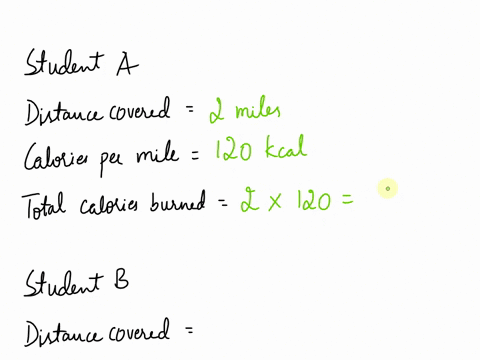 Student A
Distance covered = 2 miles
Calories per mile = 120 kcal
Total calories burned = 2 × 120 =
Student B
Distance covered =